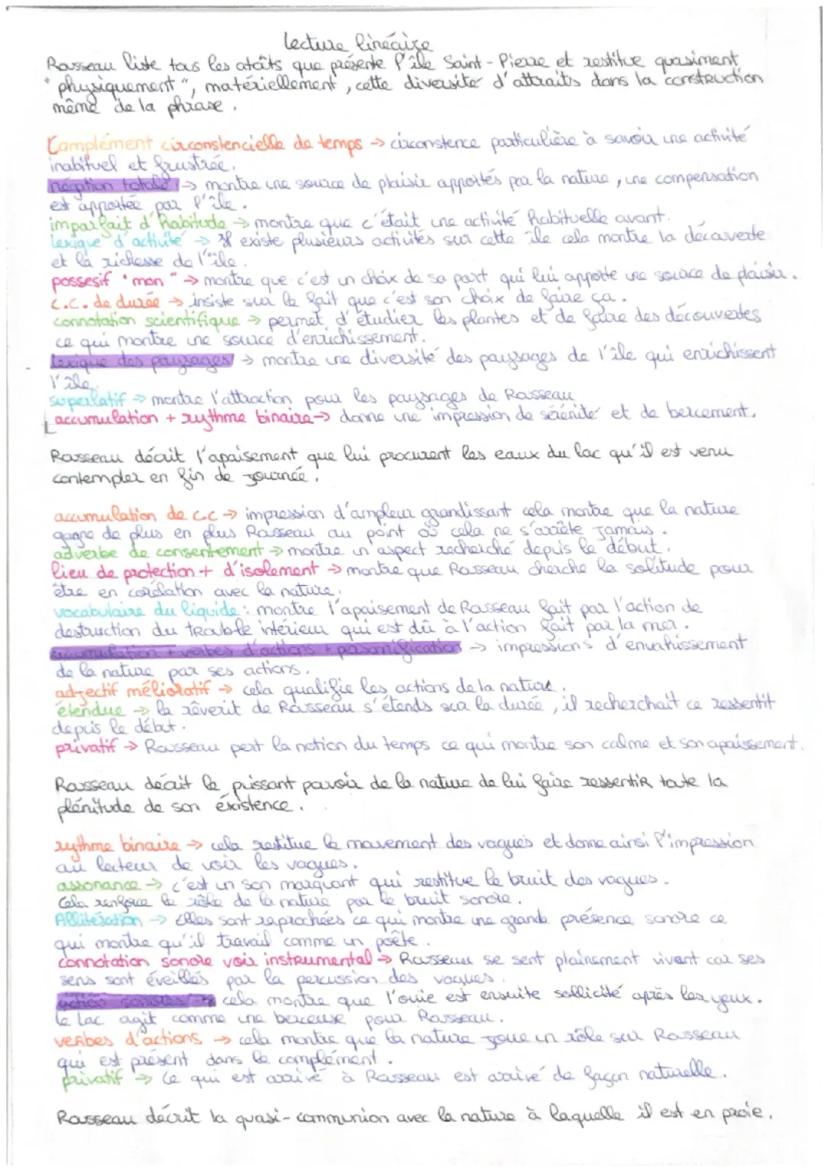 Lecture linéaire
Rousseau liste tous les atoûts que présente l'île Saint-Pierre et restitue quasiment
"physiquement", matériellement, cette diversité d'attraits dans la construction
même de la phrase.
Complément circonstencielle de temps → circonstence particulière à savoir une activité
inabituel et frustrée.
négation totale → montre une source de plaisir apportés par la nature, une compensation
est apportée par l'île.
imparfait d'habitude → montre que c'était une activité habituelle avant.
lexique d'activité → Il existe plusieurs activités sur cette île cela montre la découverte
et la richesse de l'île.
possesif "mon" → montre que c'est un choix de sa part qui lui apporte une source de plaisir.
c.c. de durée → insiste sur le fait que c'est son choix de faire ça.
connotation scientifique → permet d'étudier les plantes et de faire des découvertes
ce qui montre une source d'enrichissement.
lexique des paysages → montre une diversité des paysages de l'île qui enrichissent
l'île.
superlatif → montre l'attraction pour les paysages de Rousseau
accumulation + rythme binaire → donne une impression de sérénité et de bercement.
Rousseau décrit l'apaisement que lui procurent les eaux du lac qu'il est venu
contempler en fin de journée.
accumulation de c.c → impression d'ampleur grandissant cela montre que la nature
gagne de plus en plus Rousseau au point où cela ne s'arrête jamais.
adverbe de consentement → montre un aspect recherché depuis le début.
lieu de protection + d'isolement → montre que Rousseau cherche la solitude pour
être en corélation avec la nature.
vocabulaire du liquide : montre l'apaisement de Rousseau fait par l'action de
destruction du trouble intérieur qui est dû à l'action fait par la mer.
accumulation + verbes d'actions + personnification → impressions d'envahissement
de la nature par ses actions.
adjectif mélioratif → cela qualifie les actions de la nature.
étendue → la rêverit de Rousseau s'étends sur la durée, il recherchait ce ressentit
depuis le début.
privatif → Rousseau pert la notion du temps ce qui montre son calme et son apaissement.
Rousseau décrit le puissant pouvoir de la nature de lui faire ressentir toute la
plénitude de son éxistence.
rythme binaire → cela restitue le mouvement des vagues et donne ainsi l'impression
au lecteur de voir les vagues.
assonance → c'est un son marquant qui restitue le bruit des vagues.
Cela renforce le rôle de la nature par le bruit sonore.
Allitération → Elles sont raprochées ce qui montre une grande présence sonore ce
qui montre qu'il travail comme un poète.
connotation sonore voir instrumental → Rousseau se sent plainement vivant car ses
sens sont éveillés par la percussion des vagues.
→ cela montre que l'ouïe est ensuite sollicité après les yeux.
Le lac agit comme une berceuse pour Rousseau.
verbes d'actions → cela montre que la nature joue un rôle sur Rousseau
qui est présent dans le complément.
privatif → Ce qui est arrivé à Rousseau est arrivé de façon naturelle.
Rousseau décrit la quasi-communion avec la nature à laquelle il est en proie.